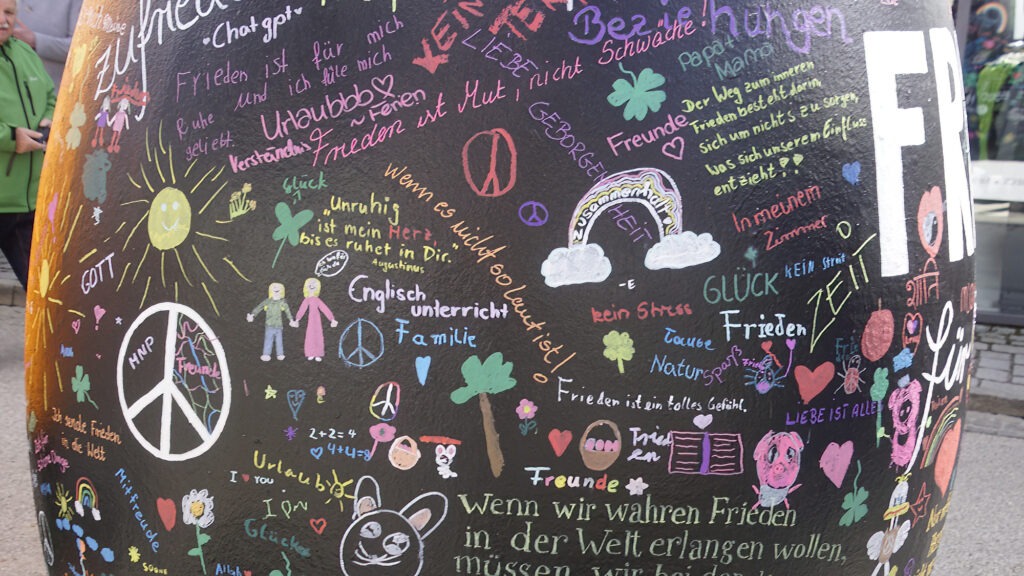 zufrieden
Chatgpt
KEIN
STREIT
Beziehungen
LIEBE
Papa+
Mama
Frieden ist für mich
und ich fühle mich
Ruhe
geliebt.
Urlaubbb
~ Ferien
Verständnis
Frieden ist Mut, nicht Schwäche!
GEBORGENHEIT
Freunde
Der Weg zum inneren
Frieden besteht darin
sich um nichts zu sorgen,
was sich unserem Einfluss
entzieht!!
FR
Glück
„Unruhig
ist mein Herz,
bis es ruhet in Dir."
Augustinus
Wenn es nicht so laut ist!
Zusammenhalt
In meinem
Zimmer
ZEIT
GOTT
Englisch
unterricht
-E
GLÜCK
KEIN Streit
शान्ति
kein Stress
Frieden
Familie
Natur
Spaß
für
HNP
Freunde
Frieden ist ein tolles Gefühl.
LIEBE IST ALLES
Ich sende Frieden
in die Welt
2+2=4
4+4=8
Urlaub
I YOU
Freunde
Mitfreude
Glück
Wenn wir wahren Frieden
in der Welt erlangen wollen,
müssen wir bei den
SONNE
Allah